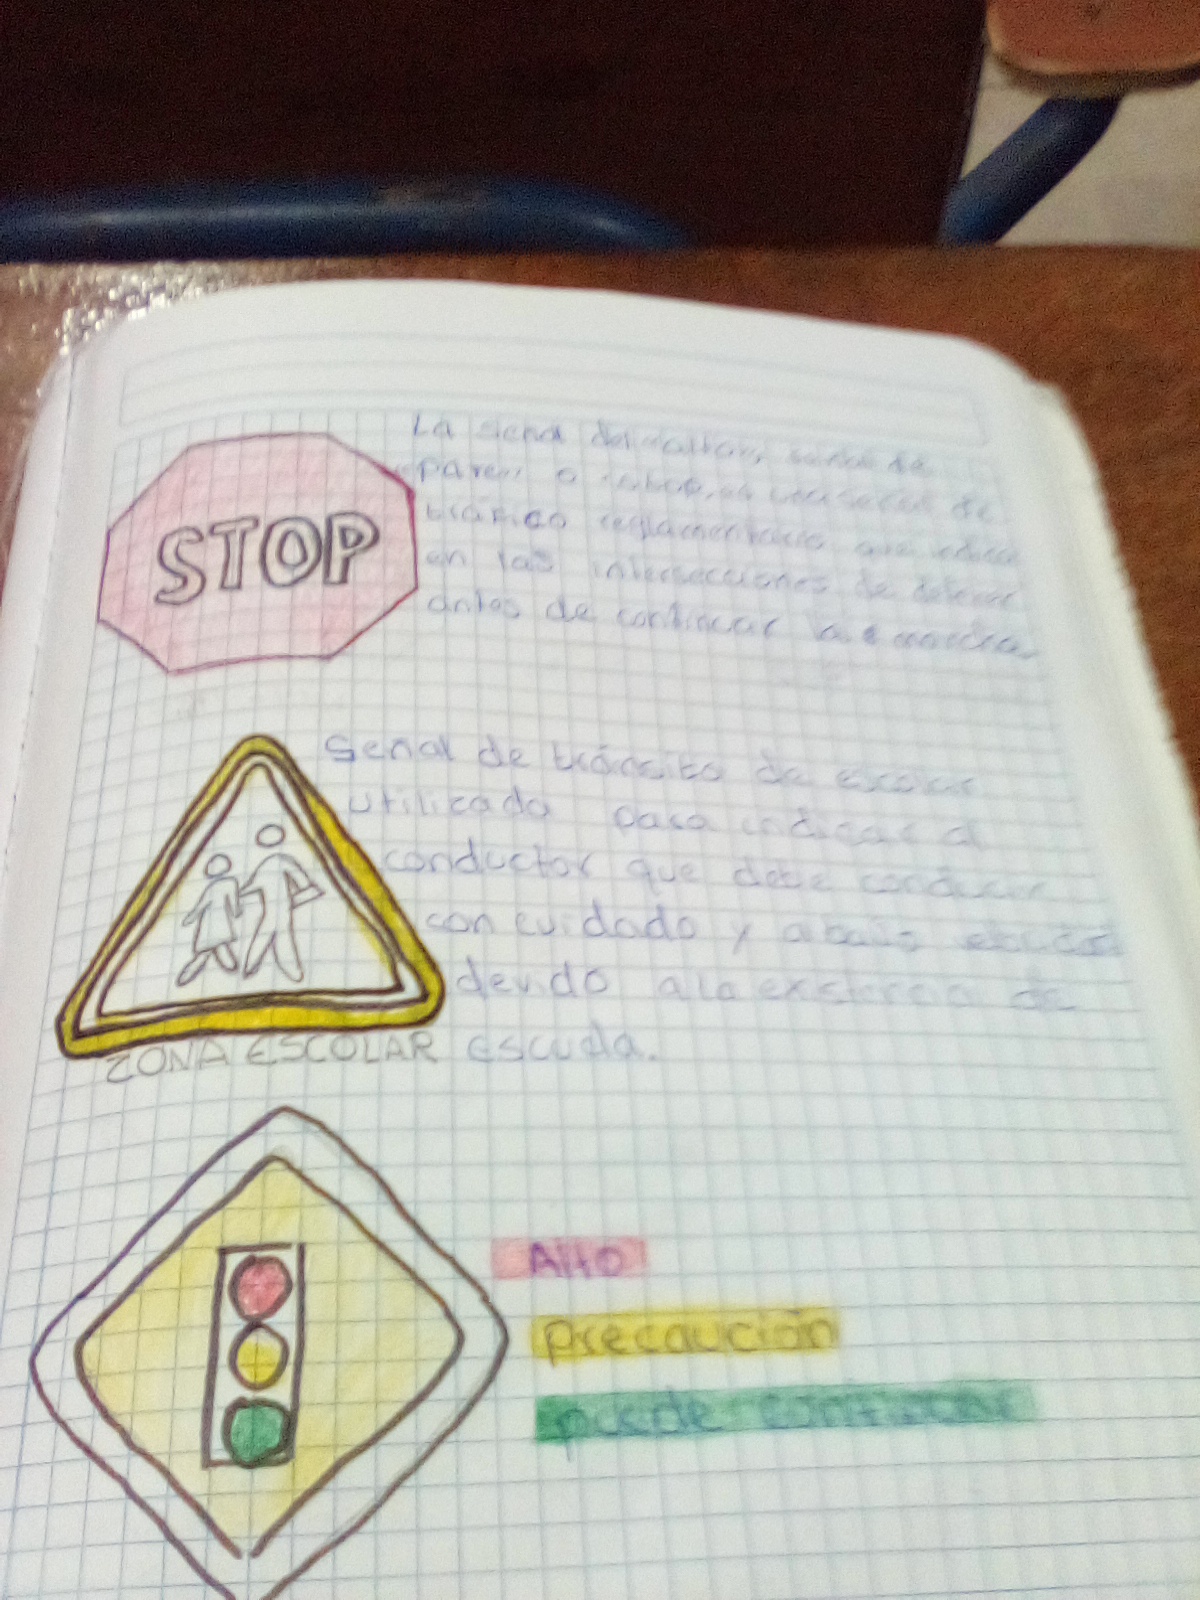 STOP
La señal de
pare o
tráfico reglamentarias que
en las intersecciones de detener
antes de continuar la marcha
Señal de tránsito de escolar
utilizada para indicar al
conductor que debe conducir
con cuidado y abajo
devido a la existencia de
escuela.
ZONA ESCOLAR
Alto
precaución
puede continuar